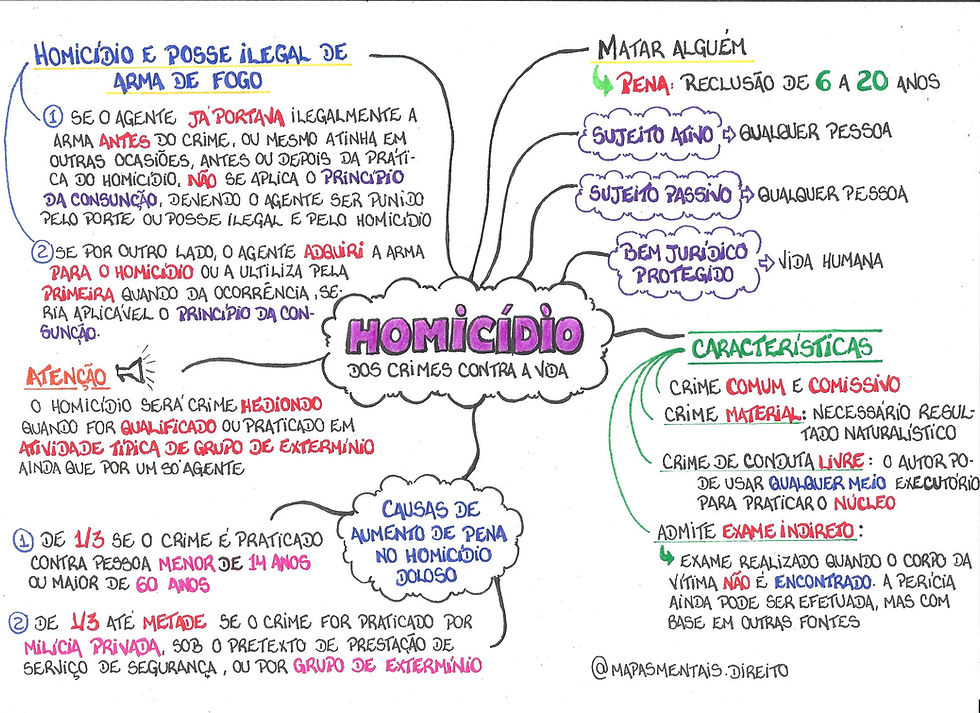 HOMICÍDIO E POSSE ILEGAL DE
ARMA DE FOGO
① SE O AGENTE JÁ PORTAVA ILEGALMENTE A
ARMA ANTES DO CRIME, OU MESMO ATINHA EM
OUTRAS OCASIÕES, ANTES OU DEPOIS DA PRÁTI-
CA DO HOMICÍDIO, NÃO SE APLICA O PRINCÍPIO
DA CONSUNÇÃO, DEVENDO O AGENTE SER PUNIDO
PELO PORTE OU POSSE ILEGAL E PELO HOMICÍDIO
② SE POR OUTRO LADO, O AGENTE ADQUIRI A ARMA
PARA O HOMICÍDIO OU A ULTILIZA PELA
PRIMEIRA QUANDO DA OCORRÊNCIA, SE-
RIA APLICÁVEL O PRINCÍPIO DA CON-
SUNÇÃO.
ATENÇÃO
O HOMICÍDIO SERÁ CRIME HEDIONDO
QUANDO FOR QUALIFICADO OU PRATICADO EM
ATIVIDADE TÍPICA DE GRUPO DE EXTERMÍNIO
AINDA QUE POR UM SÓ AGENTE
HOMICÍDIO
DOS CRIMES CONTRA A VIDA
MATAR ALGUÉM
PENA: RECLUSÃO DE 6 A 20 ANOS
SUJEITO ATIVO ⇨ QUALQUER PESSOA
SUJEITO PASSIVO ⇨ QUALQUER PESSOA
BEM JURÍDICO
PROTEGIDO ⇨ VIDA HUMANA
CARACTERÍSTICAS
CRIME COMUM E COMISSIVO
CRIME MATERIAL: NECESSÁRIO RESUL-
TADO NATURALÍSTICO
CRIME DE CONDUTA LIVRE: O AUTOR PO-
DE USAR QUALQUER MEIO EXECUTÓRIO
PARA PRATICAR O NÚCLEO
ADMITE EXAME INDIRETO:
EXAME REALIZADO QUANDO O CORPO DA
VÍTIMA NÃO É ENCONTRADO. A PERÍCIA
AINDA PODE SER EFETUADA, MAS COM
BASE EM OUTRAS FONTES
CAUSAS DE
AUMENTO DE PENA
NO HOMICÍDIO
DOLOSO
① DE 1/3 SE O CRIME É PRATICADO
CONTRA PESSOA MENOR DE 14 ANOS
OU MAIOR DE 60 ANOS
② DE 1/3 ATÉ METADE SE O CRIME FOR PRATICADO POR
MILÍCIA PRIVADA, SOB O PRETEXTO DE PRESTAÇÃO DE
SERVIÇO DE SEGURANÇA, OU POR GRUPO DE EXTERMÍNIO
@MAPASMENTAIS.DIREITO